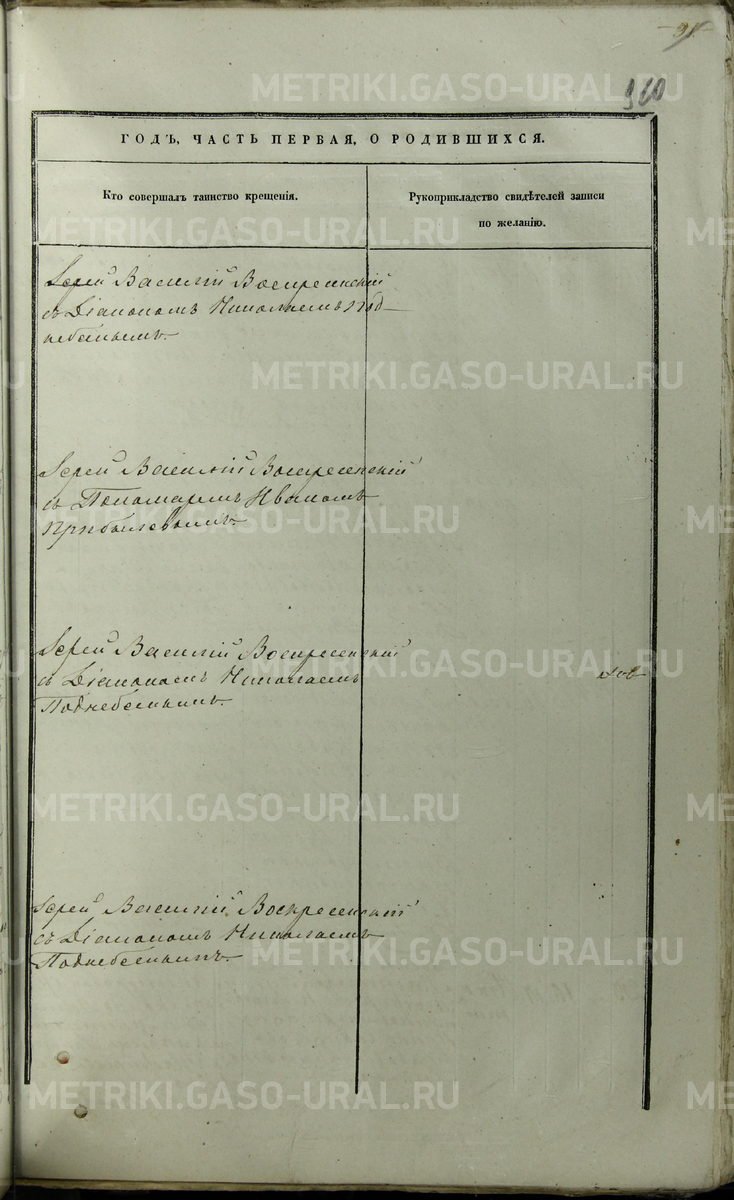 91
960
ГОДЪ, ЧАСТЬ ПЕРВАЯ, О РОДИВШИХСЯ.
Кто совершалъ таинство крещенія.
Рукоприкладство свидѣтелей записи
по желанію.
Іерей Василій Воскресенскій
съ Діакономъ Николаемъ Под-
небеснымъ.
Іерей Василій Воскресенскій
съ Пономаремъ Иваномъ
Прибылевымъ.
Іерей Василій Воскресенскій
съ Діакономъ Николаемъ
Поднебеснымъ.
Іерей Василій Воскресенскій
съ Діакономъ Николаемъ
Поднебеснымъ.
METRIKI.GASO-URAL.RU
METRIKI.GASO-URAL.RU
METRIKI.GASO-URAL.RU
METRIKI.GASO-URAL.RU
METRIKI.GASO-URAL.RU
METRIKI.GASO-URAL.RU
METRIKI.GASO-URAL.RU
METRIKI.GASO-URAL.RU